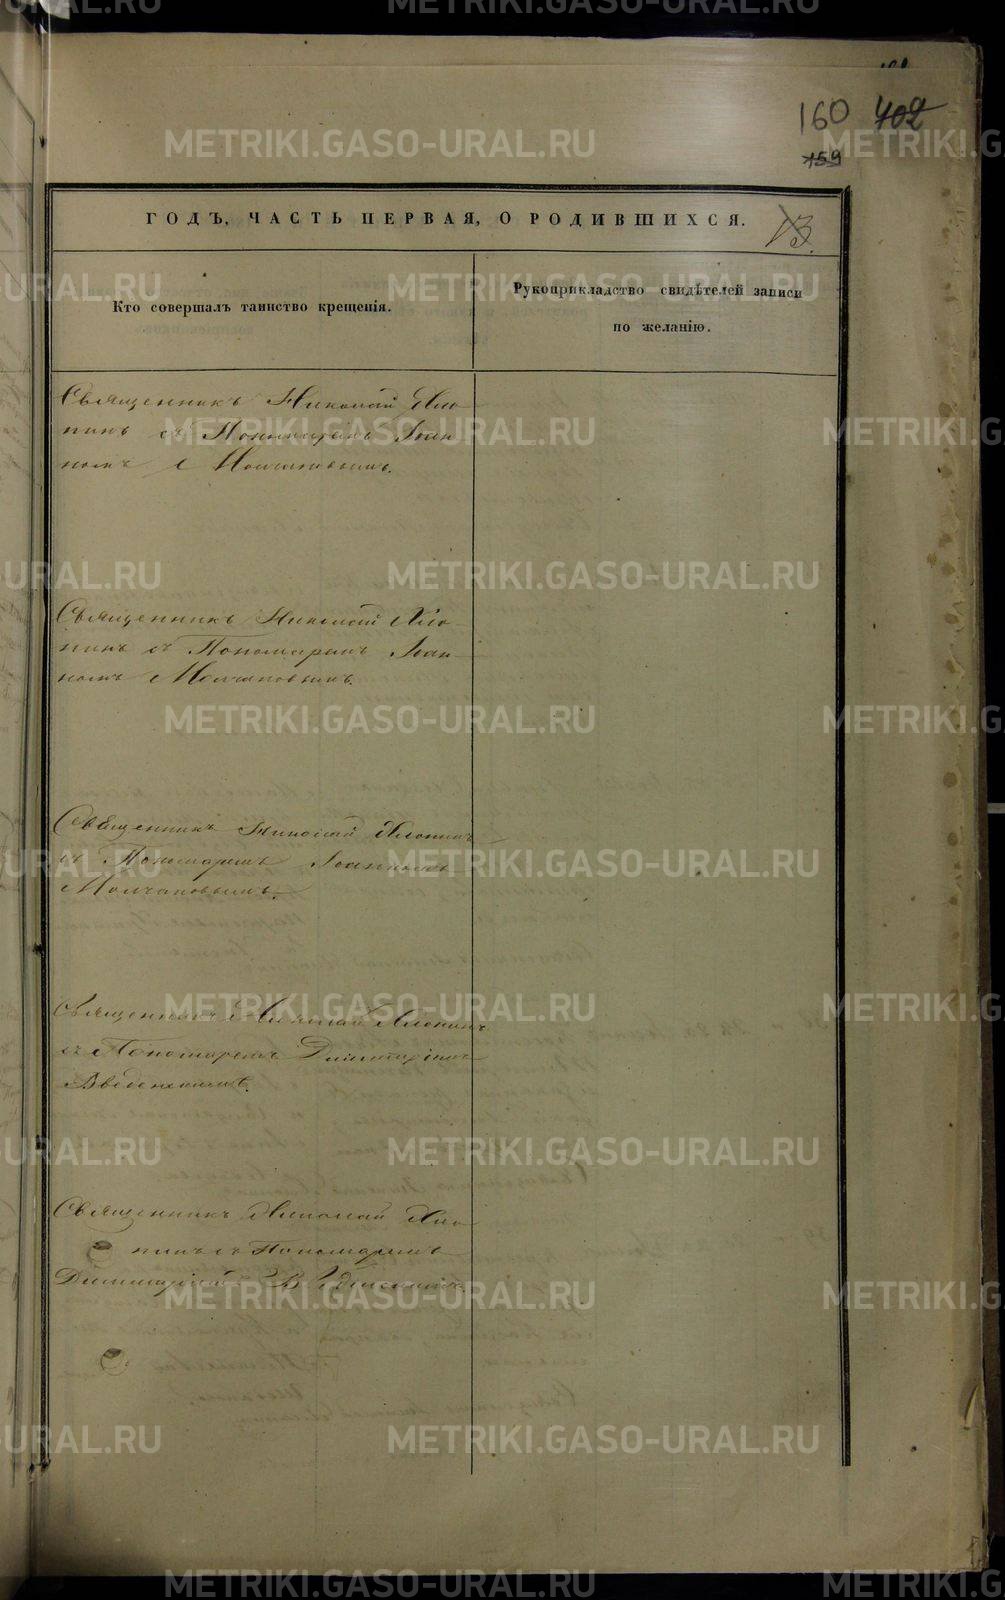 160 402
159
ГОДЪ, ЧАСТЬ ПЕРВАЯ, О РОДИВШИХСЯ. 13.
Кто совершалъ таинство крещенія.
Рукоприкладство свидѣтелей записи
по желанію.
Священникъ Николай
съ Пономаремъ Іоан
номъ Молчановымъ.
Священникъ Николай
съ Пономаремъ Іоан
номъ Молчановымъ.
Священникъ Николай
съ Пономаремъ Іоанномъ
Молчановымъ.
Священникъ Николай
съ Пономаремъ Димитріемъ
Введенскимъ.
Священникъ Николай
съ Пономаремъ
Введенскимъ
METRIKI.GASO-URAL.RU